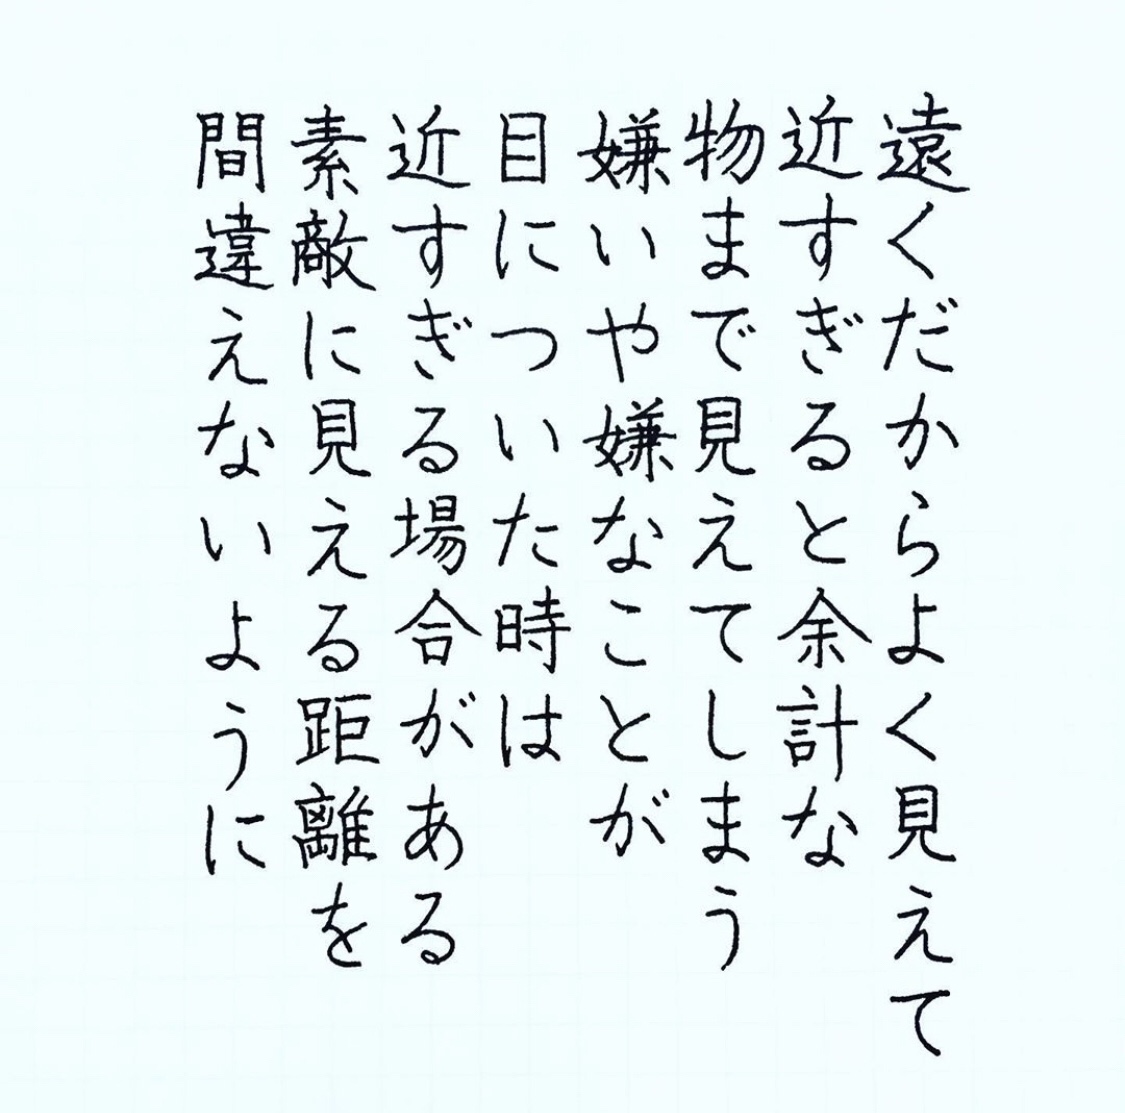 遠くだからよく見えて
近すぎると余計な
物まで見えてしまう
嫌いや嫌なことが
目についた時は
近すぎる場合がある
素敵に見える距離を
間違えないように